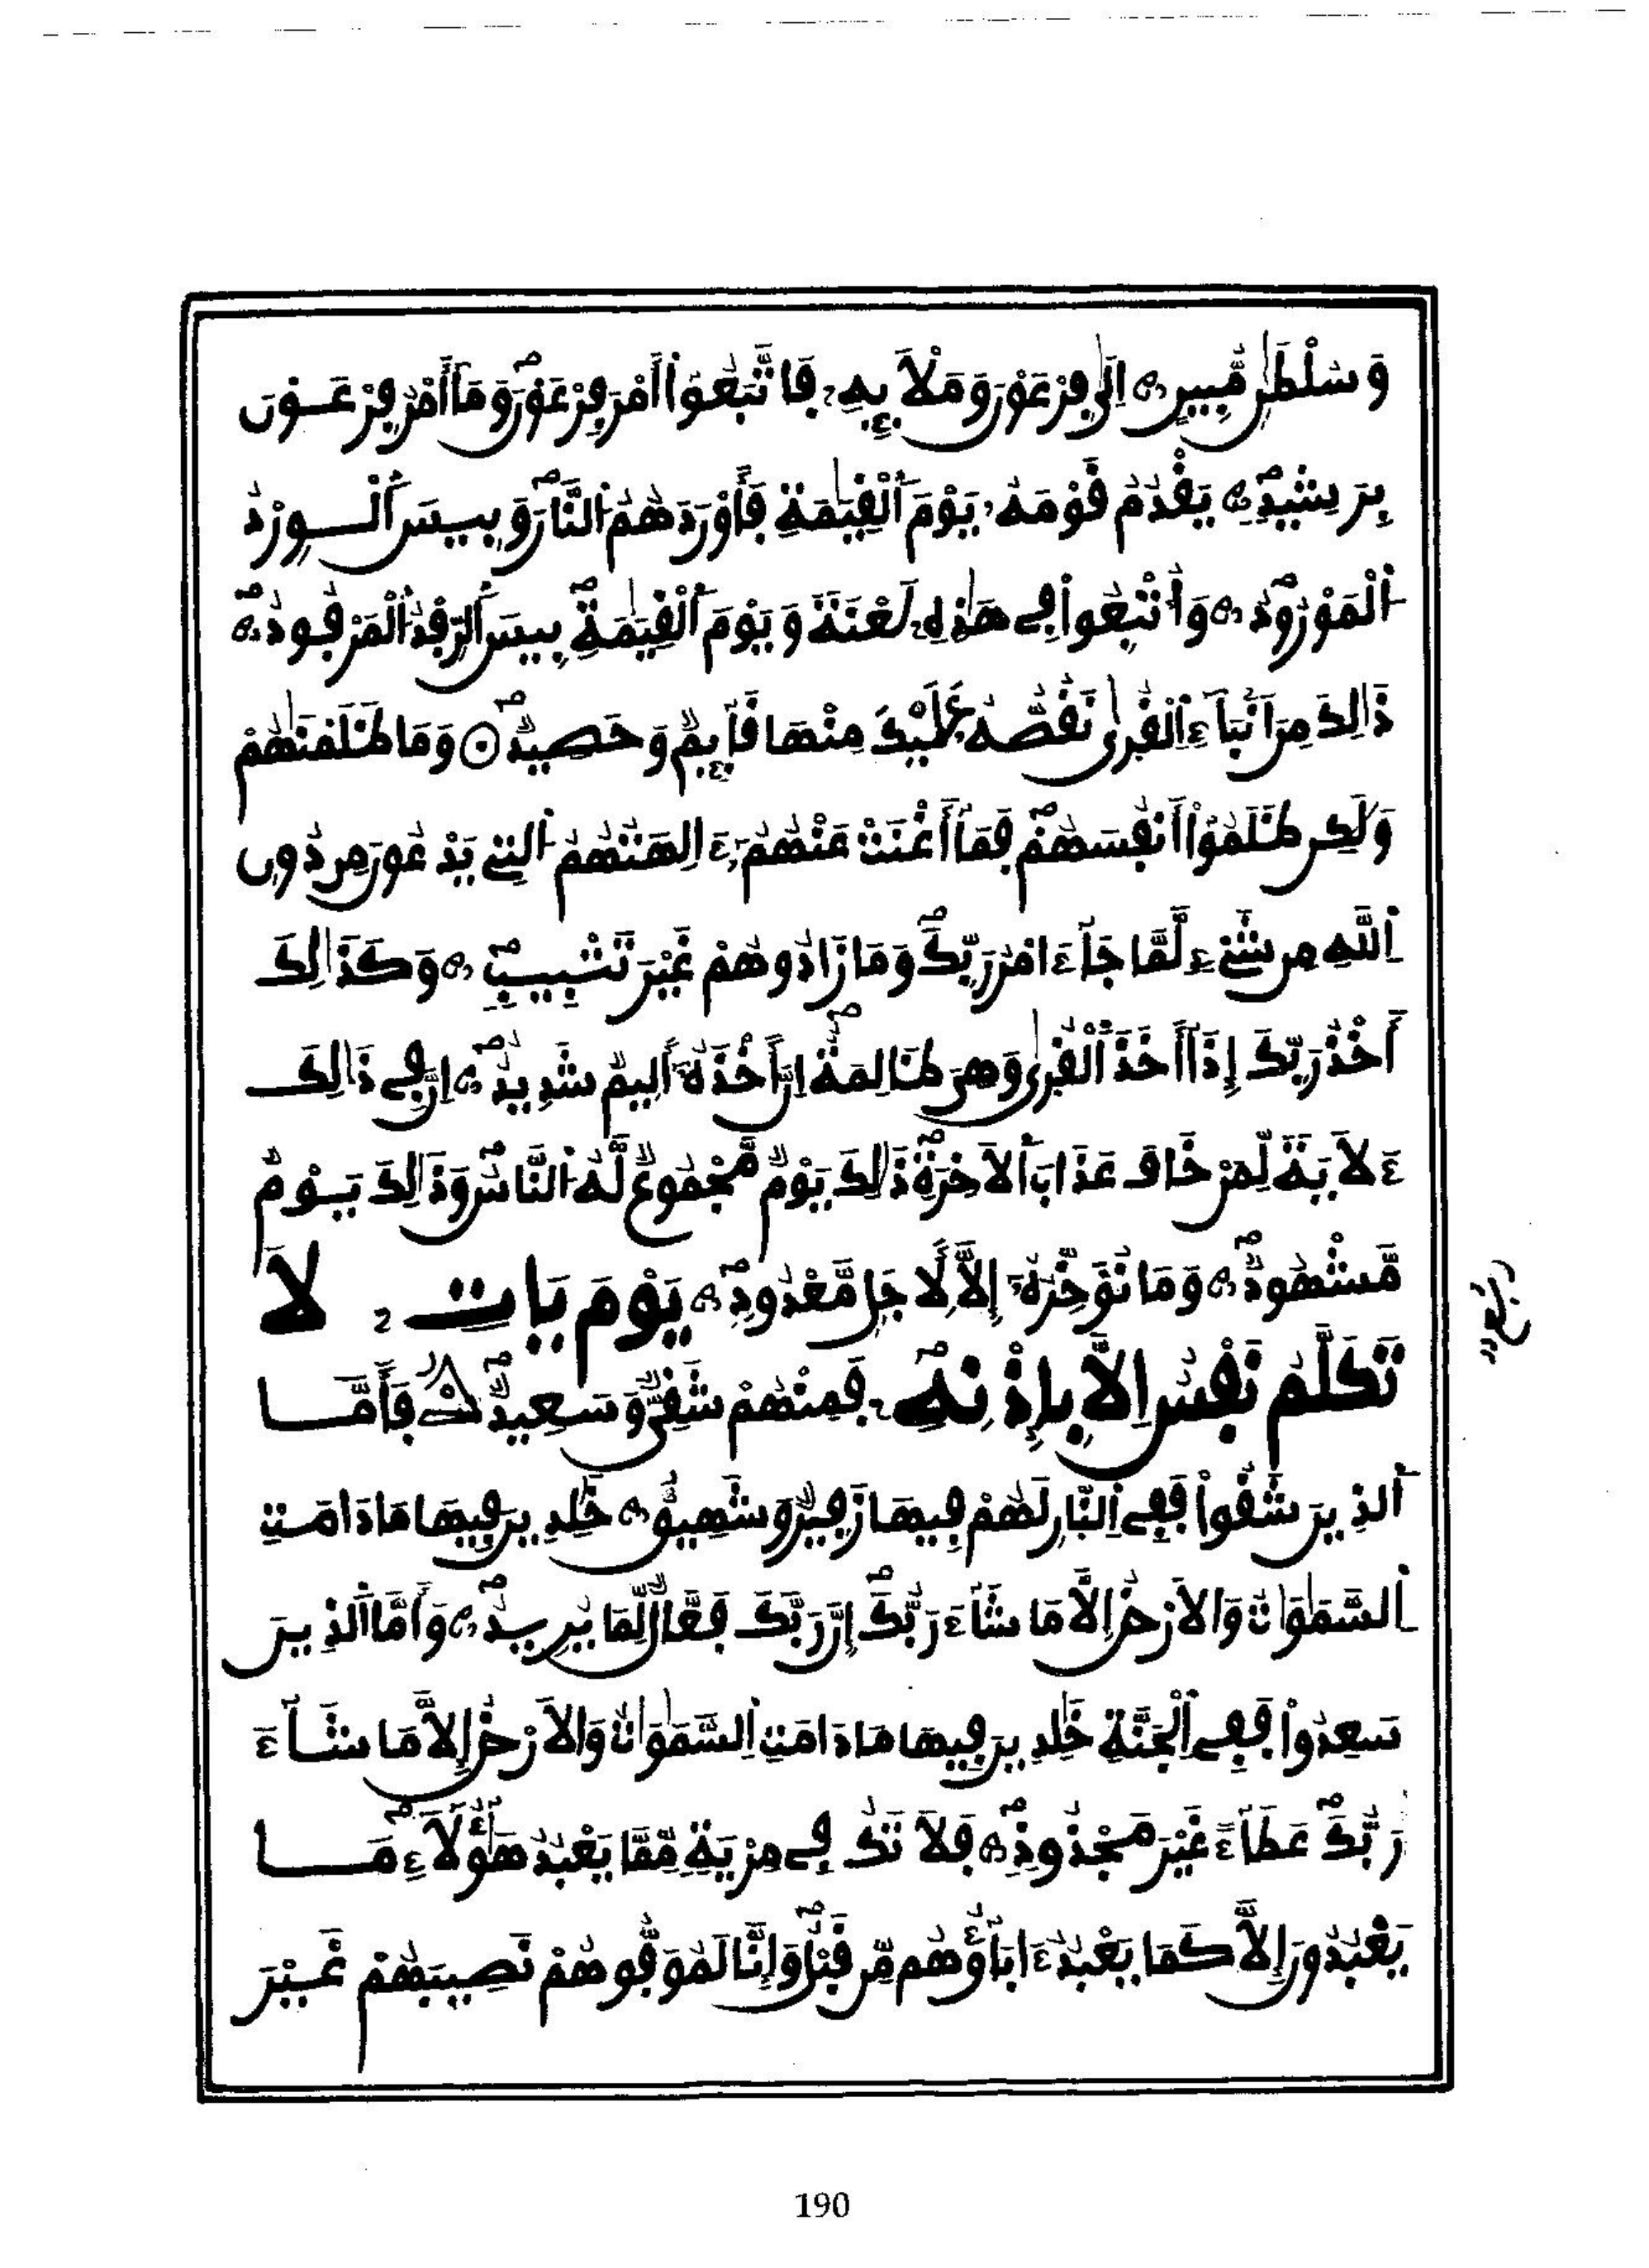 وَسُلْطَٰنٍ مُّبِينٍ ۝ اِلَىٰ فِرْعَوْنَ وَمَلَإِيْهِۦ فَاتَّبَعُوٓاْ أَمْرَ فِرْعَوْنَۖ وَمَآ أَمْرُ فِرْعَــوْنَ
بِرَشِيدٖۖ ۝ يَقْدُمُ قَوْمَهُۥ يَوْمَ اَ۬لْقِيَٰمَةِ فَأَوْرَدَهُمُ اُ۬لنَّارَۖ وَبِيسَ اَ۬لْــوِرْدُ
اُ۬لْمَوْرُودُۖ ۝ وَأُتْبِعُواْ فِے هَٰذِهِۦ لَعْنَةٗ وَيَوْمَ اَ۬لْقِيَٰمَةِۖ بِيسَ اَ۬لرِّفْدُ اُ۬لْمَرْفُودُۖ ۝
ذَٰلِكَ مِنَ اَنۢبَآءِ اِ۬لْقُر۪ىٰ نَقُصُّهُۥ عَلَيْكَ مِنْهَا قَآئِمٞ وَحَصِيدٞۖ ۝ وَمَا ظَلَمْنَٰهُمْ
وَلَٰكِن ظَلَمُوٓاْ أَنفُسَهُمْۖ فَمَآ أَغْنَتْ عَنْهُمُۥٓ ءَالِهَتُهُمُ اُ۬لتِے يَدْعُونَ مِن دُونِ
اِ۬للَّهِ مِن شَےْءٖ لَّمَّا جَآءَ امْرُ رَبِّكَۖ وَمَا زَادُوهُمْ غَيْرَ تَتْبِيبٖۖ ۝ وَكَذَٰلِكَ
أَخْذُ رَبِّكَ إِذَآ أَخَذَ اَ۬لْقُر۪ىٰ وَهِيَ ظَٰلِمَةٌۖ اِنَّ أَخْذَهُۥٓ أَلِيمٞ شَدِيدٌۖ ۝ اِنَّ فِے ذَٰلِكَ
ءَلَايَةٗ لِّمَنْ خَافَ عَذَابَ اَ۬لَاخِرَةِۖ ذَٰلِكَ يَوْمٞ مَّجْمُوعٞ لَّهُ اُ۬لنَّاسُۖ وَذَٰلِكَ يَــوْمٞ
مَّشْهُودٞۖ ۝ وَمَا نُؤَخِّرُهُۥٓ إِلَّا لِأَجَلٖ مَّعْدُودٖۖ ۝ يَوْمَ يَاتِــۦ لَا
تَكَلَّمُ نَفْسٌ اِلَّا بِإِذْنِهِۦۖ فَمِنْهُمْ شَقِيّٞ وَسَعِيدٞۖ ۝ فَأَمَّــا
اَ۬لذِينَ شَقُواْ فَفِے اِ۬لنّ۪ارِ لَهُمْ فِيهَا زَفِيرٞ وَشَهِيقٌ ۝ خَٰلِدِينَ فِيهَا مَا دَامَتِ
اِ۬لسَّمَٰوَٰتُ وَالَارْضُ إِلَّا مَا شَآءَ رَبُّكَۖ إِنَّ رَبَّكَ فَعَّالٞ لِّمَا يُرِيدُۖ ۝ وَأَمَّا اَ۬لذِينَ
سَعِدُواْ فَفِے اِ۬لْجَنَّةِ خَٰلِدِينَ فِيهَا مَا دَامَتِ اِ۬لسَّمَٰوَٰتُ وَالَارْضُ إِلَّا مَا شَــآءَ
رَبُّكَۖ عَطَآءً غَيْرَ مَجْذُوذٖۖ ۝ فَلَا تَكُ فِے مِرْيَةٖ مِّمَّا يَعْبُدُ هَٰٓؤُلَآءِۖ مَــا
يَعْبُدُونَ إِلَّا كَمَا يَعْبُدُ ءَابَآؤُهُم مِّن قَبْلُۖ وَإِنَّا لَمُوَفُّوهُمْ نَصِيبَهُمْ غَــيْرَ
ربع
190